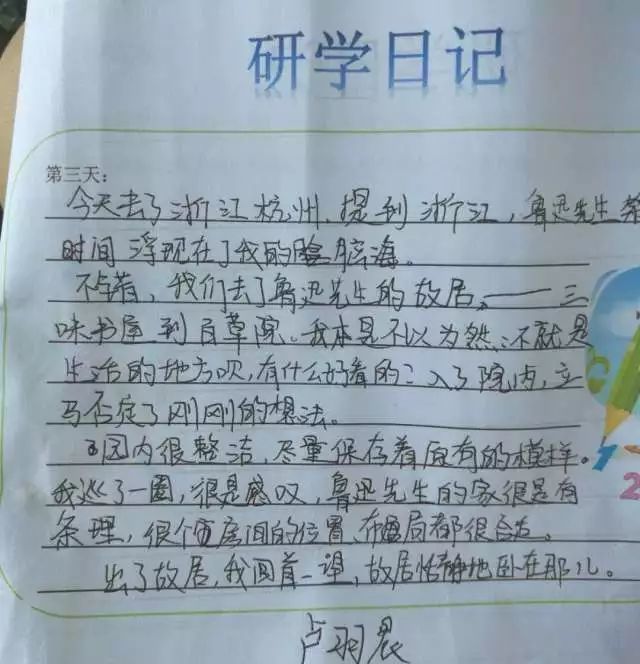 研学日记
第三天：
今天去了浙江杭州，提到浙江，鲁迅先生第
时间浮现在了我的脑海。
不错，我们去了鲁迅先生的故居。——三
味书屋到百草院。我本是不以为然：不就是
生活的地方呗，有什么好看的？入了院内，立
马否定了刚刚的想法。
园内很整洁，尽量保存着原有的模样。
我巡了一圈，很是感叹，鲁迅先生的家很是有
条理，很个房间的位置、布局都很合适。
出了故居，我回首一望，故居恬静地卧在那儿。
卢羽晨
1
2